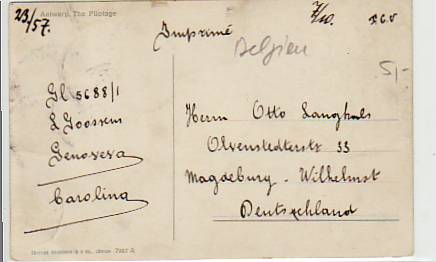 23/57.
Antwerp, The Pilotage
7/10.
F.C.V
Imprimé
Belgien
5/-
Gl 5688/1
L Goossens
Genoveva
Carolina
Herrn Otto Langhals
Olvenstedterstr 33
Magdeburg - Wilhelmst
Deutschland